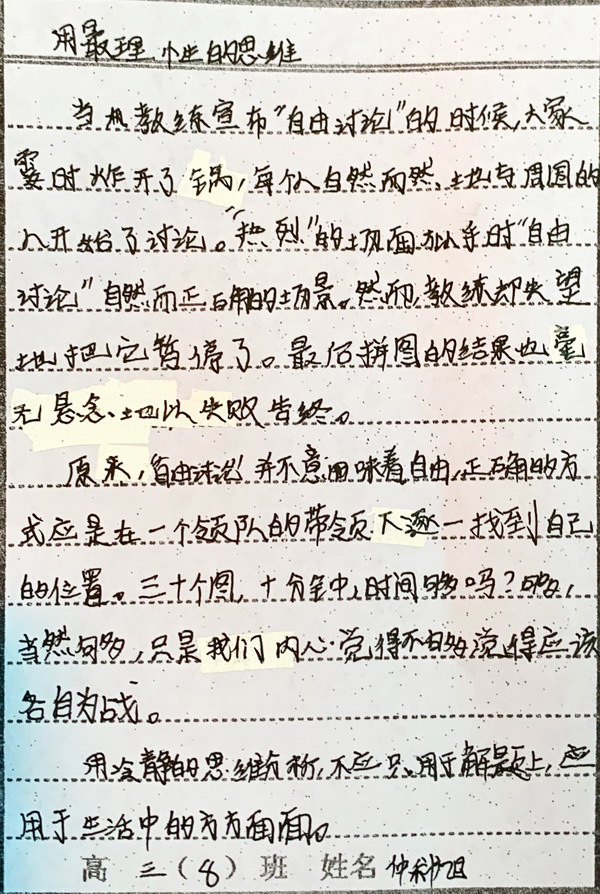 用最理性的思维
当机教练宣布“自由讨论”的时候,大家
霎时炸开了锅,每个人自然而然地与周围的
人开始了讨论。“热烈”的场面似乎时“自由
讨论”自然而正确的场景。然而,教练却失望
地把它暂停了。最后拼图的结果也毫
无悬念地以失败告终。
原来,“自由讨论”并不意味着自由,正确的方
式应是在一个领队的带领下逐一找到自己
的位置。三十个图,十分钟,时间够吗?够,
当然够,只是我们内心觉得不够觉得应该
各自为战。
用冷静的思维分析,不应只用于解题上,应
用于生活中的方方面面。
高三(8)班 姓名